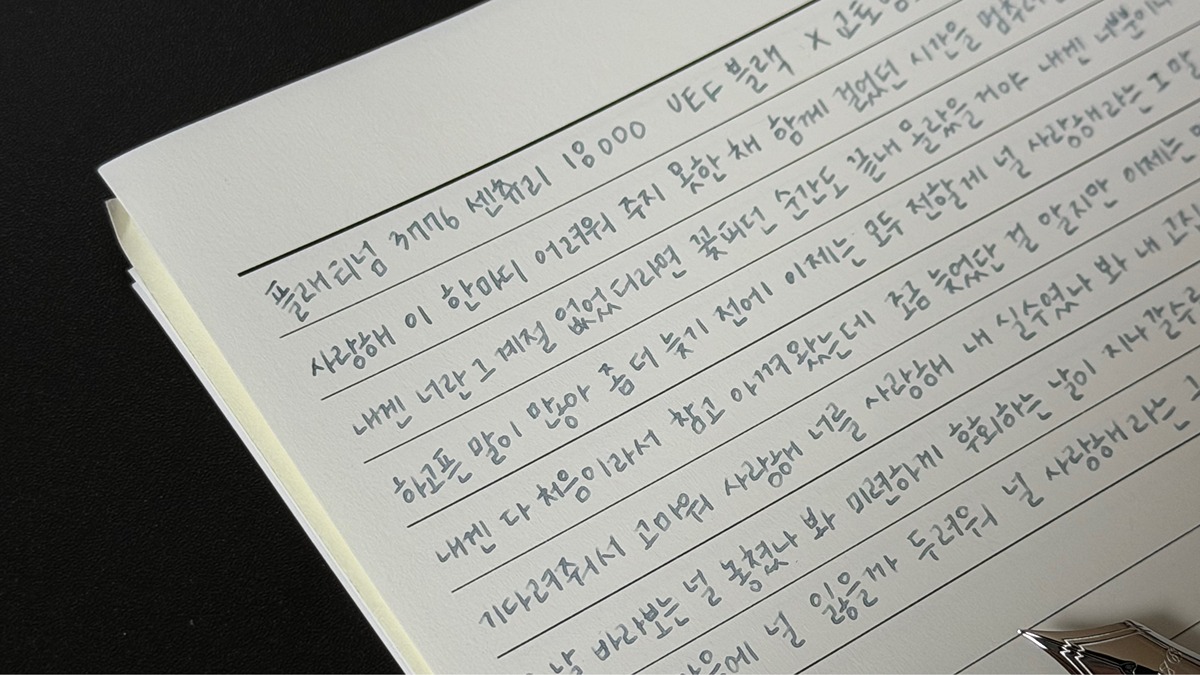 플래티넘 3776 센츄리 18000 UEF 블랙 X 교토
사랑해 이 한마디 어려워 주지 못한 채 함께 걸었던 시간을 멈추려
내겐 너란 그 계절 없었더라면 꽃피던 순간도 끝내 몰랐을거야 내겐 너뿐이
하고픈 말이 많아 좀 더 늦기 전에 이제는 모두 전할게 널 사랑해라는 그 말
내겐 다 처음이라서 참고 아껴왔는데 조금 늦었단 걸 알지만 이제는
기다려줘서 고마워 사랑해 너를 사랑해 내 실수였나 봐 내
날 바라보는 널 놓쳤나 봐 미련하게 후회하는 날이 지나갈수
널 잃을까 두려워 널 사랑해라는